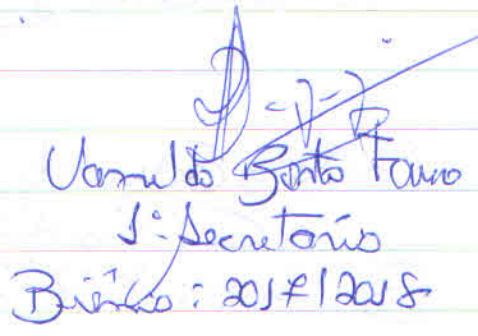 Vanildo Bento Fauro
1º Secretário
Biênio: 2017/2018